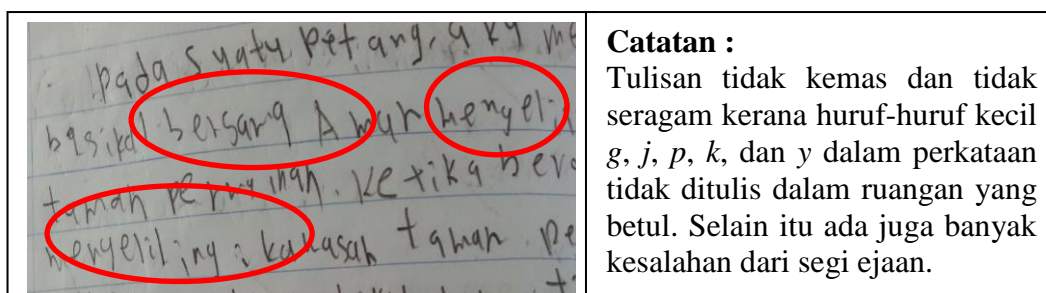 pada suatu petang, aku me
basikal bersama Aman mengeli
taman perumahan. ketika bera
mengeliling i kawasan taman pe
Catatan :
Tulisan tidak kemas dan tidak
seragam kerana huruf-huruf kecil
g, j, p, k, dan y dalam perkataan
tidak ditulis dalam ruangan yang
betul. Selain itu ada juga banyak
kesalahan dari segi ejaan.